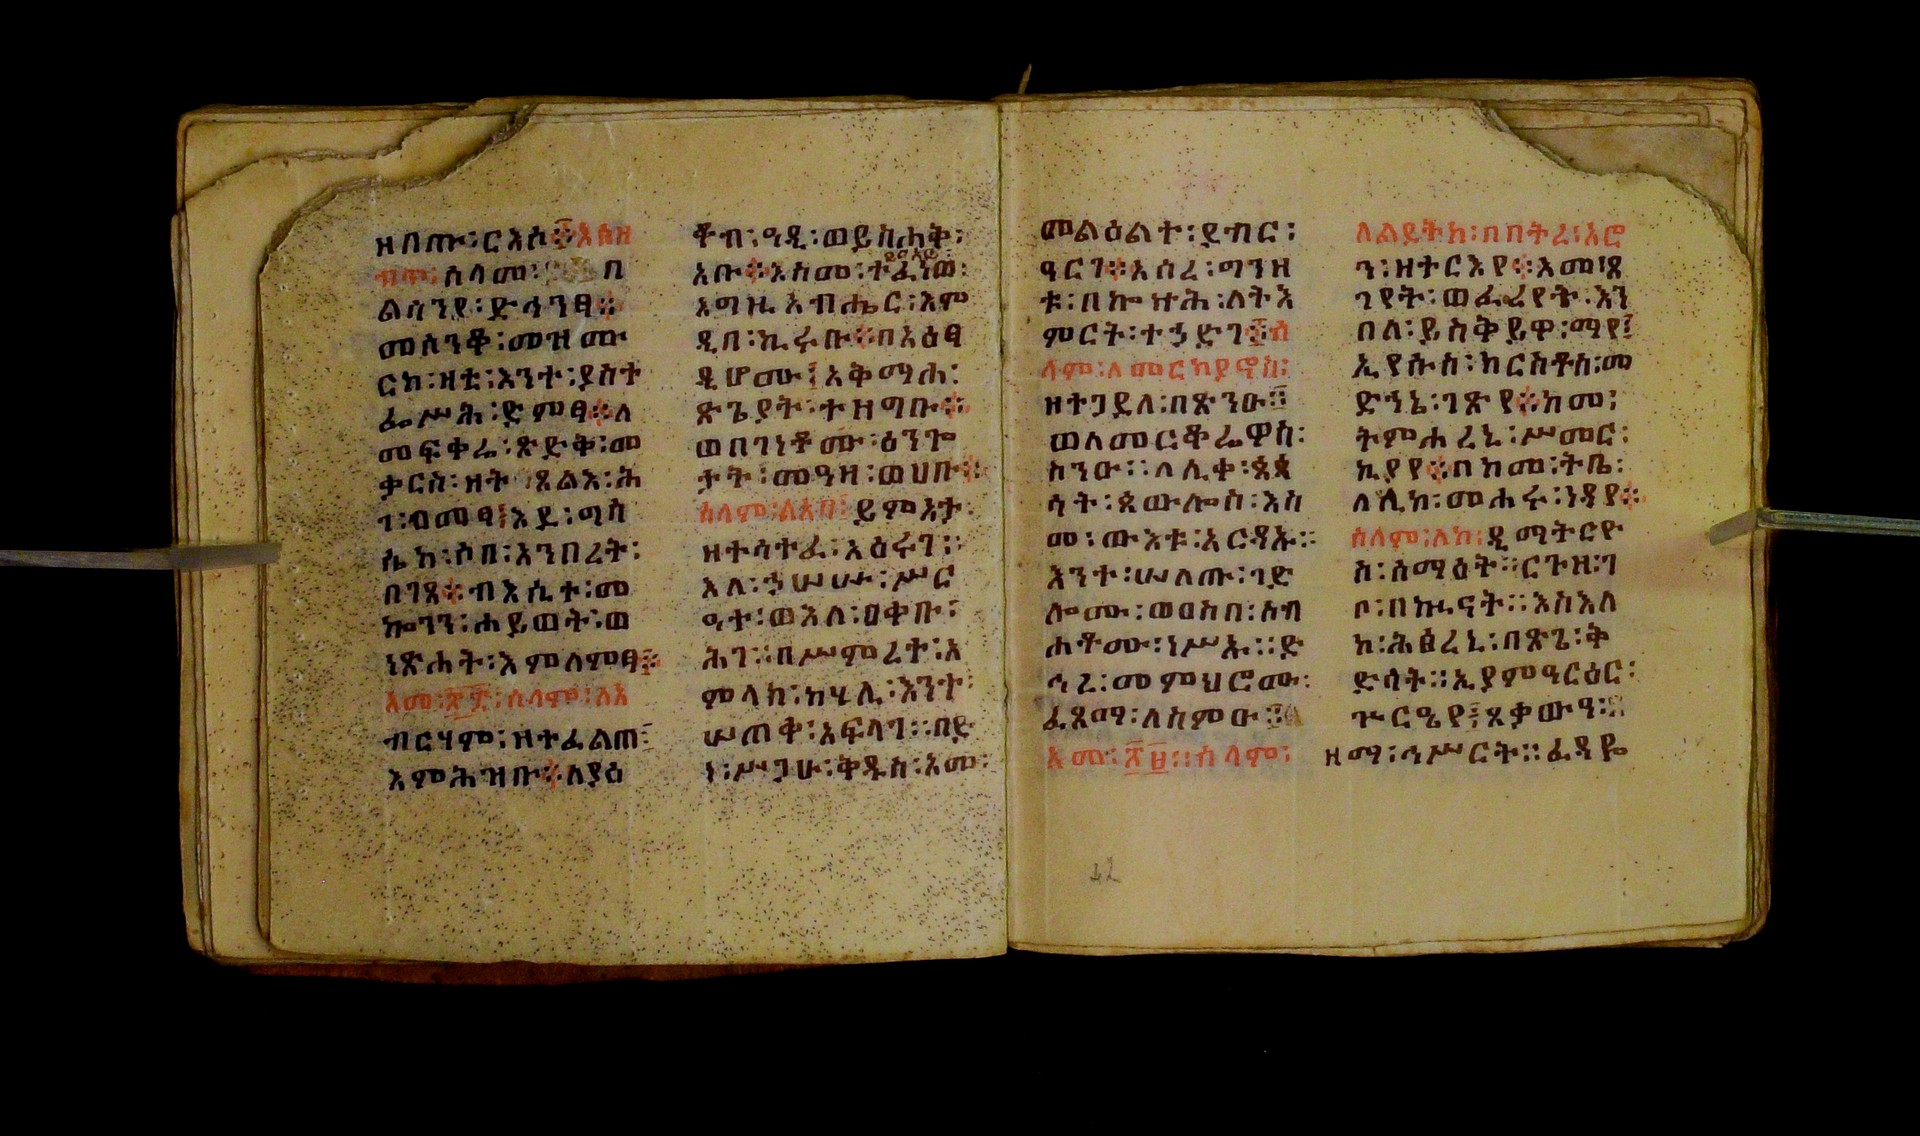 ዘበጡ፡ርእሶ፨እስዘ
ብጥ፡ሰላመ፡ በ
ልሳንየ፡ድኅንፃ፨
መሰንቆ፡መዝሙ
ርከ፡ዘቷ፡እንተ፡ያስተ
ፌሥሕ፡ድምፃ፨ለ
መፍቀሬ፡ጽድቅ፡መ
ቃርስ፡ዘት ጸልእ፡ሕ
ገ፡ዐመፃ፤እደ፡ጣስ
ሴከ፡ሶበ፡እንበረት፡
በገጸ፨ብእሲተ፡መ
ኰንን፡ሐይወት፡ወ
ነጽሐት፡እምለምፃ፨
እመ፡፳፯፡ሰላም፡ለአ
ብርሃም፡ዝተፈልጠ፤
እምሕዝቡ፨ለያዕ
ቆብ፡ዓዲ፡ወይስሐቅ፡
አቡ፨እስመ፡ተፈነወ፡
እግዚአብሔር፡እም
ዲበ፡ኪሩቡ፨በአዕፃ
ዲሆሙ፤አቅማሐ፡
ጽጌያት፡ተዘግቡ፨
ወበገነቶሙ፡ዕንጐ
ታት፡መዓዛ፡ወሀቡ፨
ሰላም፡ለእብ፡ይምአታ፡
ዘተሳተፈ፡አዕሩገ፡፡
እለ፡ኃሠሡ፡ሥር
ዓተ፡ወእለ፡ዐቀቡ፡
ሕገ፡፡በሥምረተ፡አ
ምላክ፡ከሃሊ፡እንተ፡
ሠጠቀ፡አፍላገ፡፡በድ
ነ፡ሥጋሁ፡ቅዱስ፡አመ፡
መልዕልተ፡ደብር፡
ዓርገ፨አሰረ፡ግንዘ
ቱ፡በኰኵሕ፡ለትእ
ምርት፡ተኃድገ፨ሰ
ላም፡ለመርክያኖስ፡
ዘተጋደለ፡በጽንዑ፨
ወለመርቆሬዎስ፡
ስንዑ፡፡ለሊቀ፡ጳጳ
ሳት፡ጳውሎስ፡እስ
መ፡ውእቱ፡አርዳኡ፡፡
እንተ፡ሠለጡ፡ገድ
ሎሙ፡ወዐስበ፡ሰብ
ሐቶሙ፡ነሥኡ፡፡ድ
ኅረ፡መምህሮሙ፡
ፈጸማ፡ለስምዑ፨
እመ፡፳፱፡፡ሰላም፡
ለልደትከ፡በበትረ፡አሮ
ን፡ዘተርእየ፨እመ፡ጸ
ገየት፡ወፈረየት፡እን
በለ፡ይስቅይዋ፡ማየ፤
ኢየሱስ፡ክርስቶስ፡መ
ድኀኔ፡ገጽየ፨ከመ፡
ትምሐረኒ፡ሥመር፡
ኪያየ፨በከመ፡ትቤ፡
ለሊከ፡መሐሩ፡ነዳየ፨
ሰላም፡ለከ፡ዲማትርዮ
ስ፡ሰማዕት፡፡ርጉዘ፡ገ
ቦ፡በኵናት፡፡እስእለ
ከ፡ሕፅረኒ፡በጽጌ፡ቅ
ድሳት፡፡ኢያምዓርዕር፡
ጕርዔየ፤ጸቃውዓ፡፡
ዘማ፡ኅሥርት፡፡ፈዳዬ
42